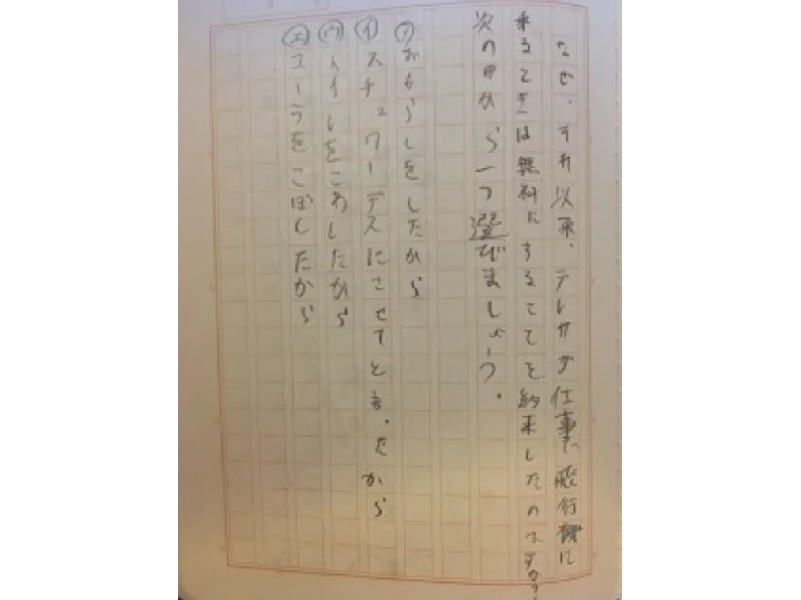 なぜ、それ以来、テレサが仕事で飛行機に
乗るときは無料にすることを約束したのですか?
次の中から一つ選びましょう。
㋐おもらしをしたから
㋑スチュワーデスにさせてと言ったから
㋒トイレをこわしたから
㋓コーラをこぼしたから